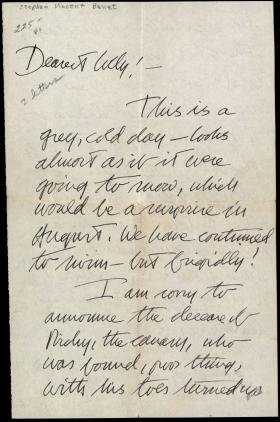 Stephen Vincent Benet
225-
2 letters
Dearest Lilly! —
This is a
grey, cold day — looks
almost as if it were
going to snow, which
would be a surprise in
August. We have continued
to swim — but frigidly!
I am sorry to
announce the decease of
Birdy, the canary, who
was found, poor thing,
with his toes turned up